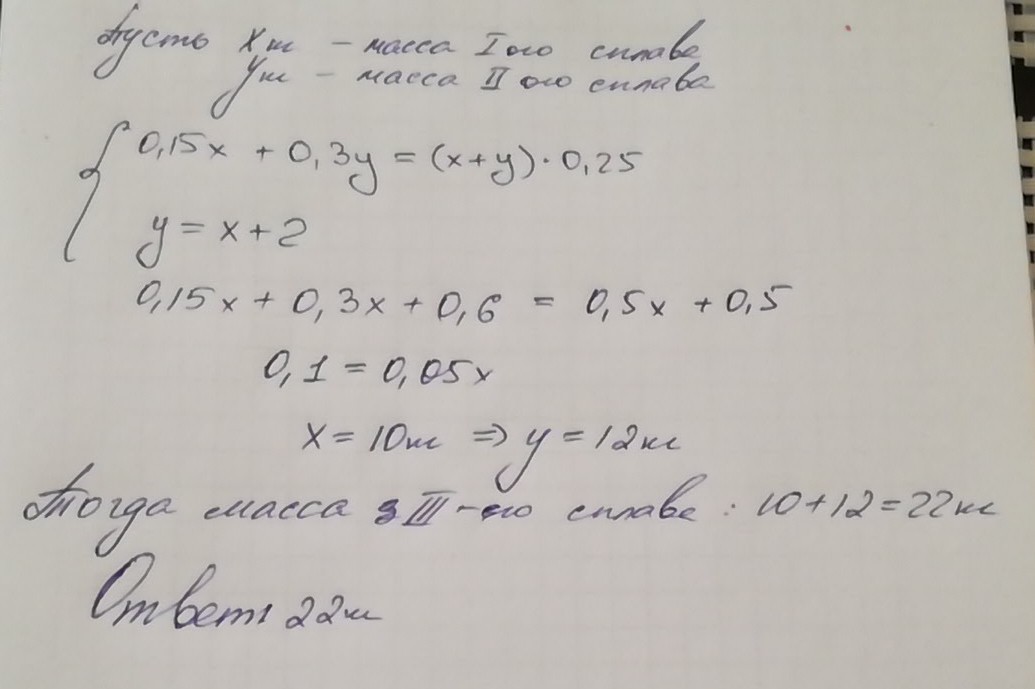 Пусть x кг – масса I ого сплава
y кг – масса II ого сплава
0,15x + 0,3y = (x+y)·0,25
y = x+2
0,15x + 0,3x + 0,6 = 0,5x + 0,5
0,1 = 0,05x
x = 10кг ⇒ y = 12кг
Тогда масса III-его сплава: 10+12=22кг
Ответ: 22кг